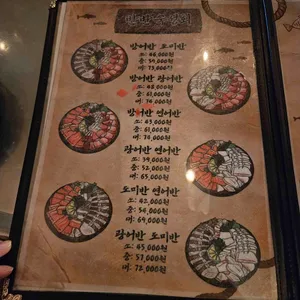 방어반 도미반
소: 46,000원
중: 59,000원
대: 73,000원
방어반 광어반
소: 48,000원
중: 61,000원
대: 76,000원
방어반 연어반
소: 43,000원
중: 61,000원
대: 70,000원
광어반 연어반
소: 39,000원
중: 52,000원
대: 65,000원
도미반 연어반
소: 42,000원
중: 54,000원
대: 69,000원
광어반 도미반
소: 45,000원
중: 57,000원
대: 72,000원